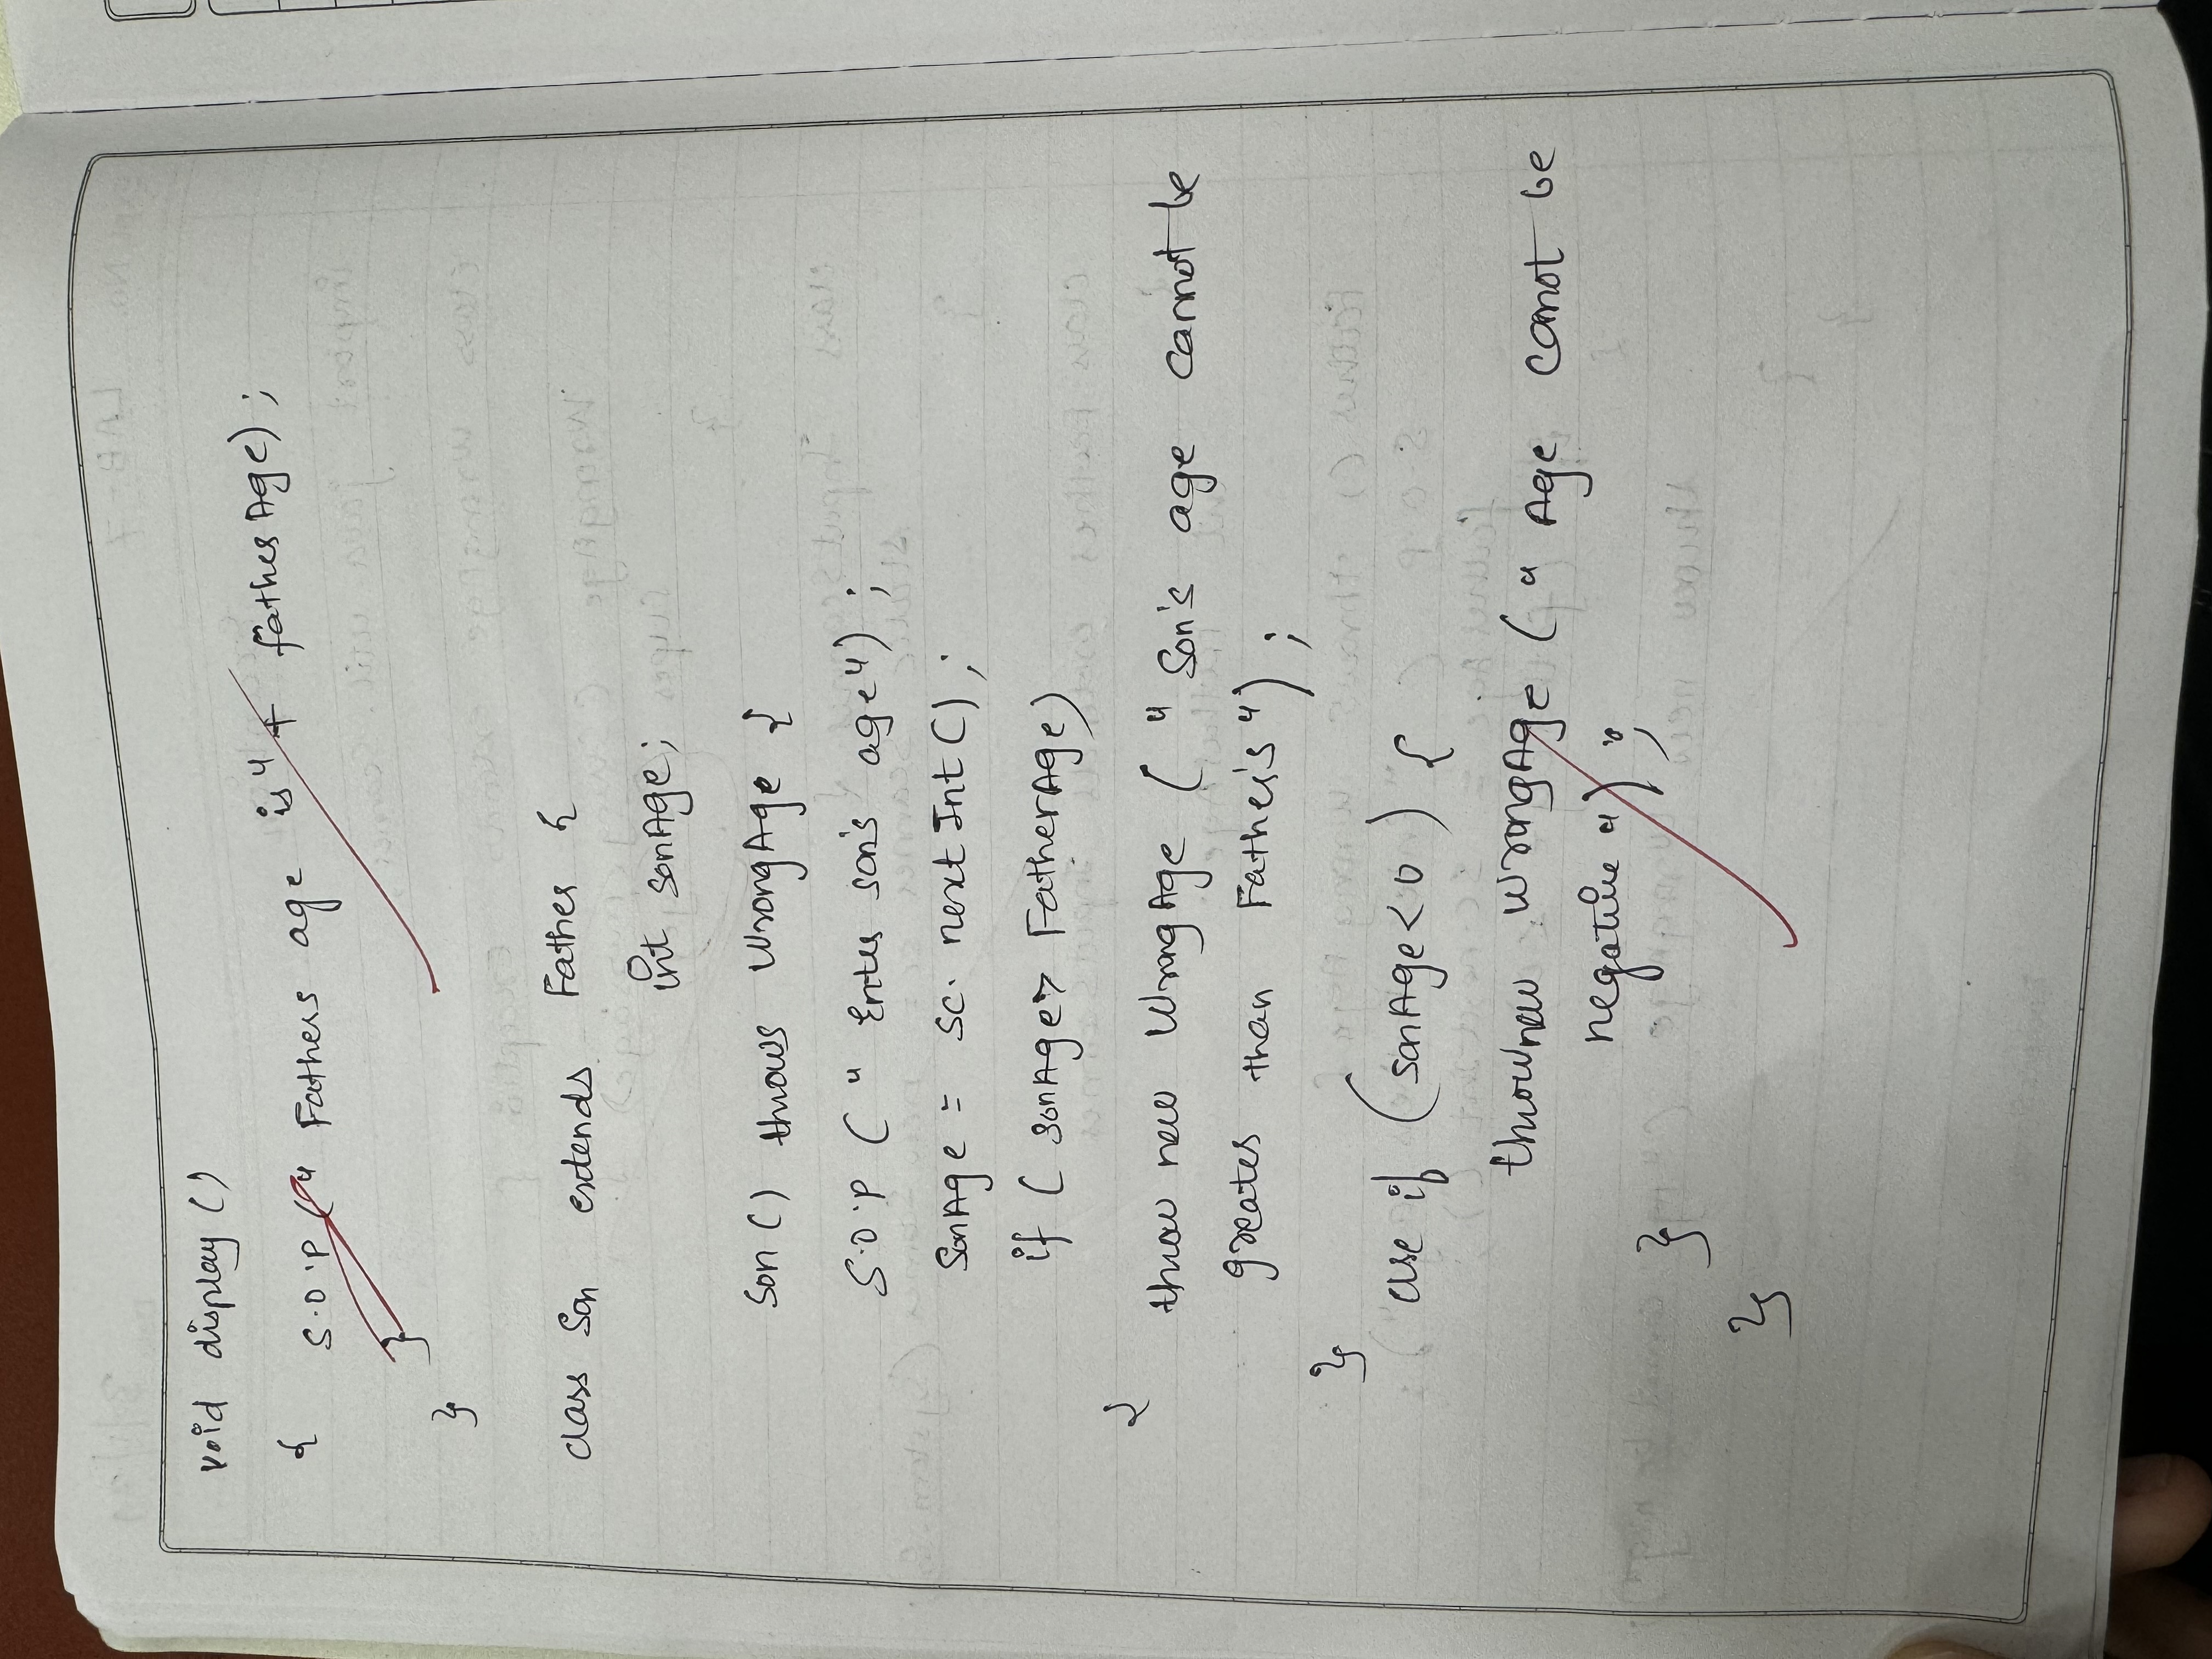 void display ()
{ S.O.P (" Fathers age is" + father Age) ;
}
}
class Son extends Father {
int sonAge;
Son () throws WrongAge {
S.O.P ( " Enter son's age") ;
SonAge = sc. next Int () ;
if ( sonAge> FatherAge)
{
throw new WrongAge ( " Son's age cannot be
greater than Father's ") ;
}
else if (sonAge < 0 ) {
throw new WrongAge ( " Age cannot be
negative ") ;
}
}